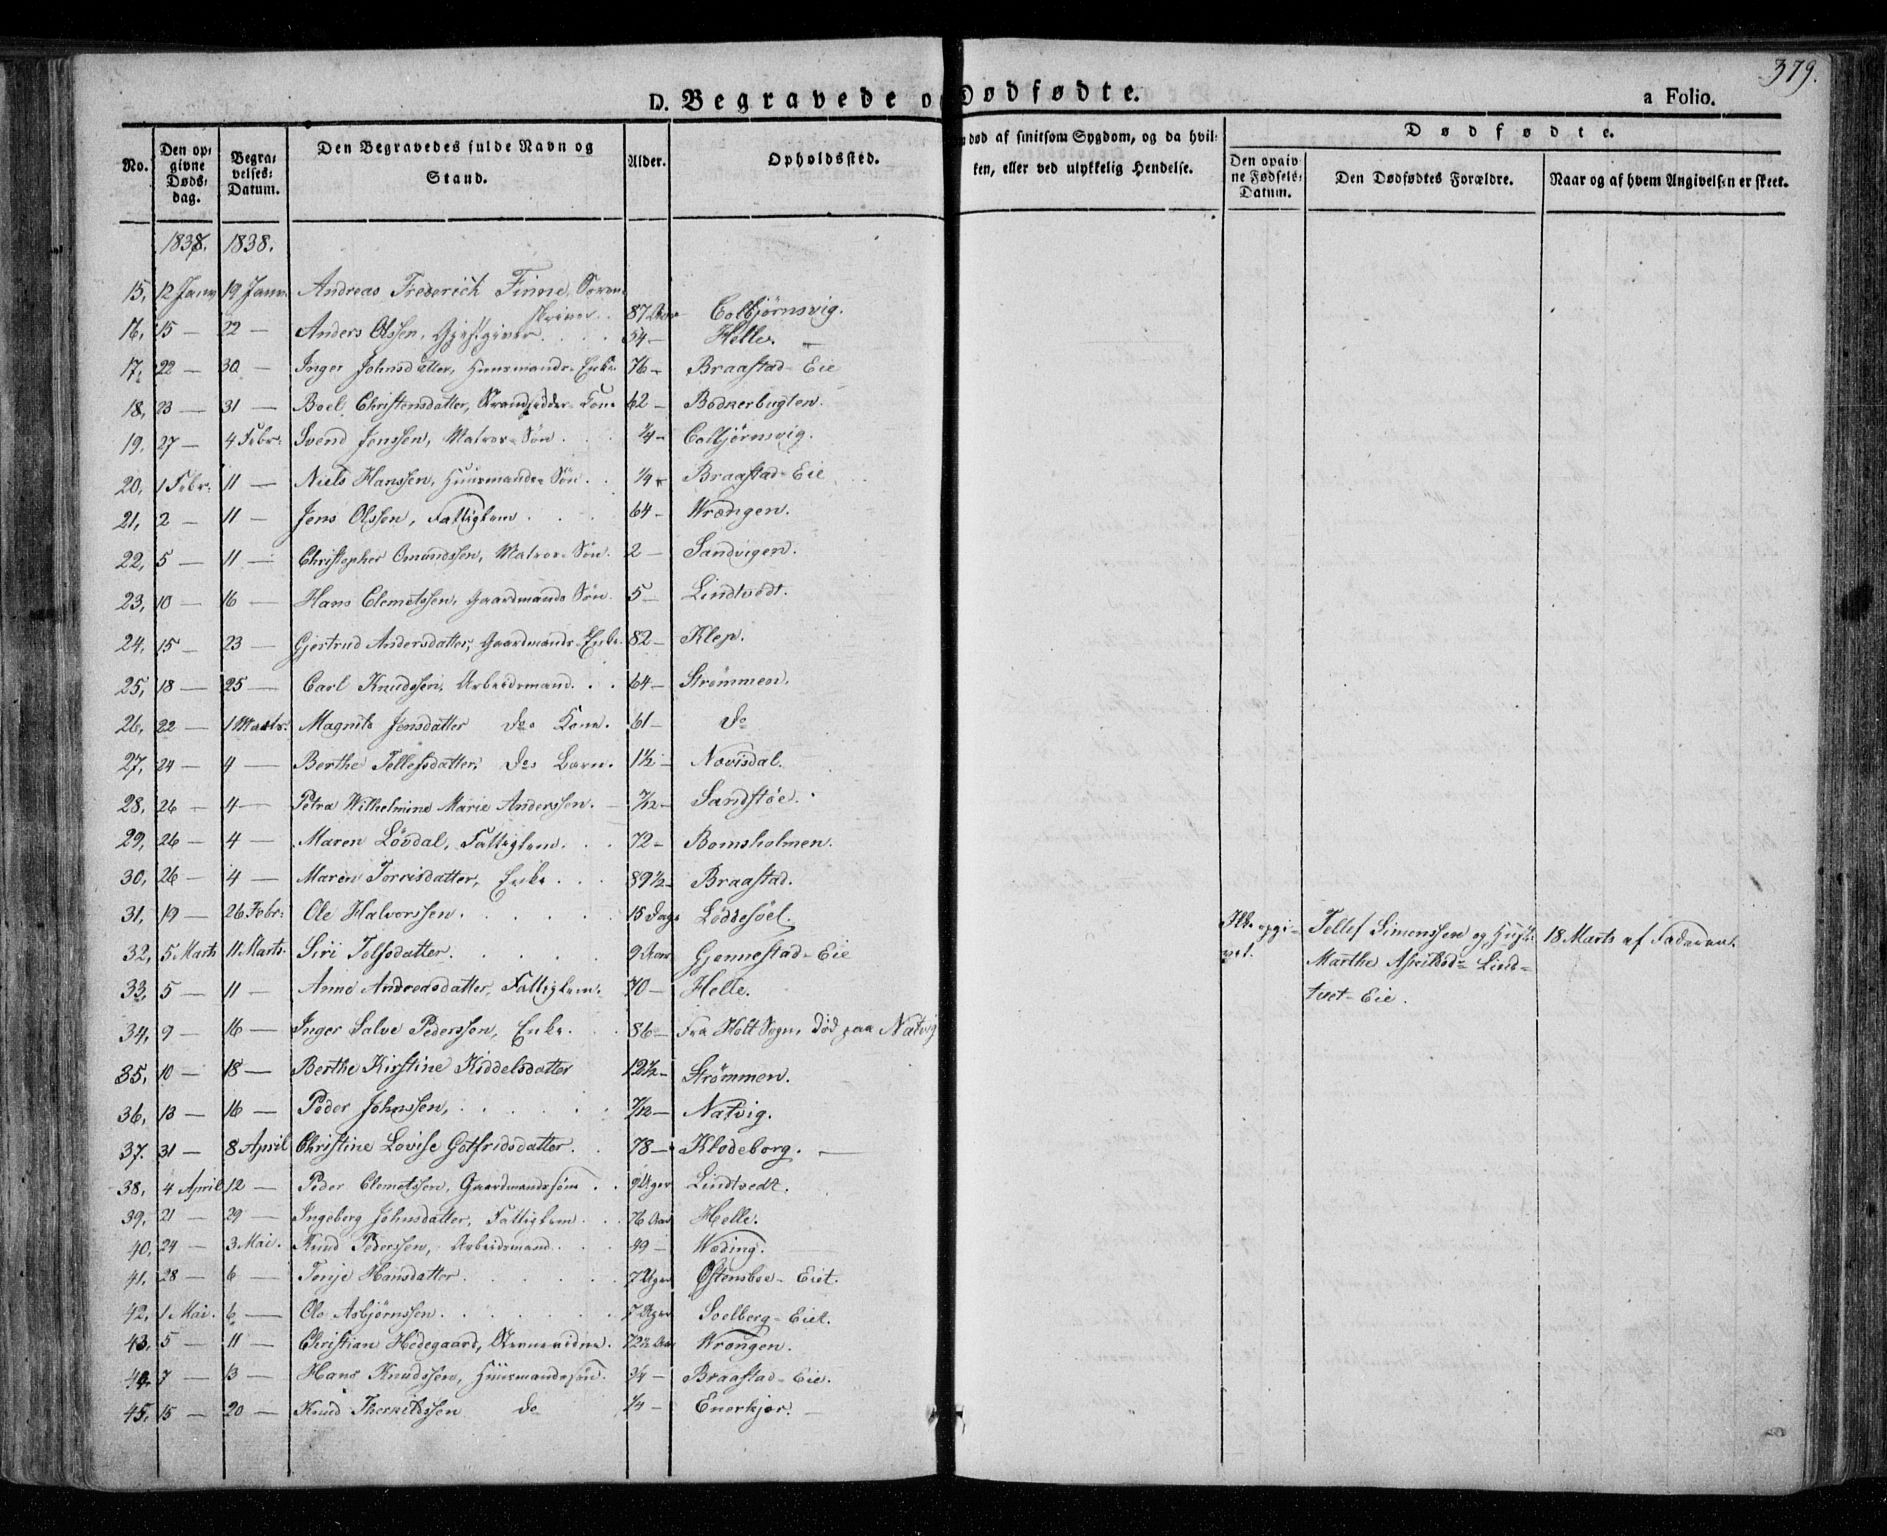 379.
D. Begravede o Dødfødte. a Folio.
No. Den opgivne Døds-dag. Begravelses-Datum. Den Begravedes fulde Navn og Stand. Alder. Opholdssted. død af smitsom Sygdom, og da hvilken, eller ved ulykkelig Hendelse. Dødfødte.
Den opgivne Fødsels-Datum. Den Dødfødtes Forældre. Naar og af hvem Angivelsen er skeet.
1838. 1838.
15, 12 Janv 19 Janv. Andreas Frederich Finne, Soren-
skriver. 87 Aar Colbjørnsvig.
16, 15 — 22 — Anders Olssen, Gjestgiver . . . 54 — Helle. —
17, 22 — 30 — Inger Johnsdatter, Huusmands-Enke 76 — Braastad-Eie
18, 23 — 31 — Boel Christensdatter, Strandsidder-Kone 62 — Bödkerbugten.
19, 27 — 4 Febr: Svend Jenssen, Matros-Søn . . . 1/4 — Colbjørnsvig.
20, 1 Febr: 11 — Niels Hanssen, Huusmands-Søn . . 1/4 — Braastad-Eie
21, 2 — 11 — Jens Olssen, Fattiglem . . . 64 — Wrængen.
22, 5 — 11 — Christopher Omundssen, Matros-Søn. 2 — Sandvigen.
23, 10 — 16 — Hans Clemetssen, Gaardmands Søn. 5 — Lindtvedt.
24, 15 — 23 — Gjertrud Andersdatter, Gaardmands-Enke. 82 — Klep.
25, 18 — 25 — Carl Knudssen, Arbeidsmand. . . 64 — Strømmen.
26, 22 — 1 Marts. Magnild Jensdatter Ds Kone. 61 — do
27, 24 — 4 — Berthe Tellefsdatter, Ds Barn. 1½ — Novisdal.
28, 26 — 4 — Petra Wilhelmine Marie Anderssen. 7/12 — Sandstøe.
29, 26 — 4 — Maren Lövdal, Fattiglem. . . 72 — Bomsholmen.
30, 26 — 4 — Maren Torrisdatter, Enke . . . 89½ — Braastad.
31, 19 — 26 Febr: Ole Halvorssen. . . . . 15 Dage Löddesöel.
32, 5 Marts 11 Marts. Siri Tolfsdatter. . . . . 9 Aar Gjennestad-Eie
33, 5 — 11 — Anne Andreasdatter, Fattiglem. 70 — Helle.
34, 9 — 16 — Inger Salve Pederssen, Enke. . . 86 — Fra Holt Sogn, død paa Natvig
35, 10 — 18 — Berthe Kirstine Kiddelsdatter 12½ — Strømmen.
36, 13 — 16 — Peder Johnssen, . . . . . 7/12 — Natvig.
37. 31 — 8 April Christine Lovise Gotfridsdatter. . 78 — Klodeborg. —
38, 4 April 12 — Peder Clemetssen, Gaardmandssøn . . 9 Uger Lindtvedt.
39, 21 — 29 — Ingeborg Johnsdatter, Fattiglem. . . 76 Aar Helle.
40, 24 — 3 Mai. Knud Pederssen, Arbeidsmand . . 49 — Næding.
41, 28 — 6 — Tonje Hansdatter. . . . . . 7 Uger Østensboe-Eiet.
42, 1 Mai. 6 — Ole Asbjørnssen. . . . . . 7 Uger Soelberg-Eiet.
43, 5 — 11 — Christian Hedegaard, 72½ Aar Wrangen.
44, 7 — 13 — Hans Knudssen, Huusmandssøn. 3/4 — Braastad-Eie.
45, 15 — 20 — Knud Therkildssen do 1/4 — Enerkjær. —
Ikke opgi-
vet.
Tellef Simonssen og Hust:
Marthe Askildsd: Lind-
tvet-Eie.
18 Marts af Faderen.